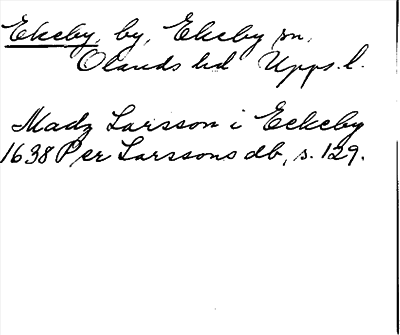 Ekeby, by, Ekeby sn.
Olands hd Upps. l.
Madz Larsson i Eekeby
1638 Per Larssons db, s. 129.